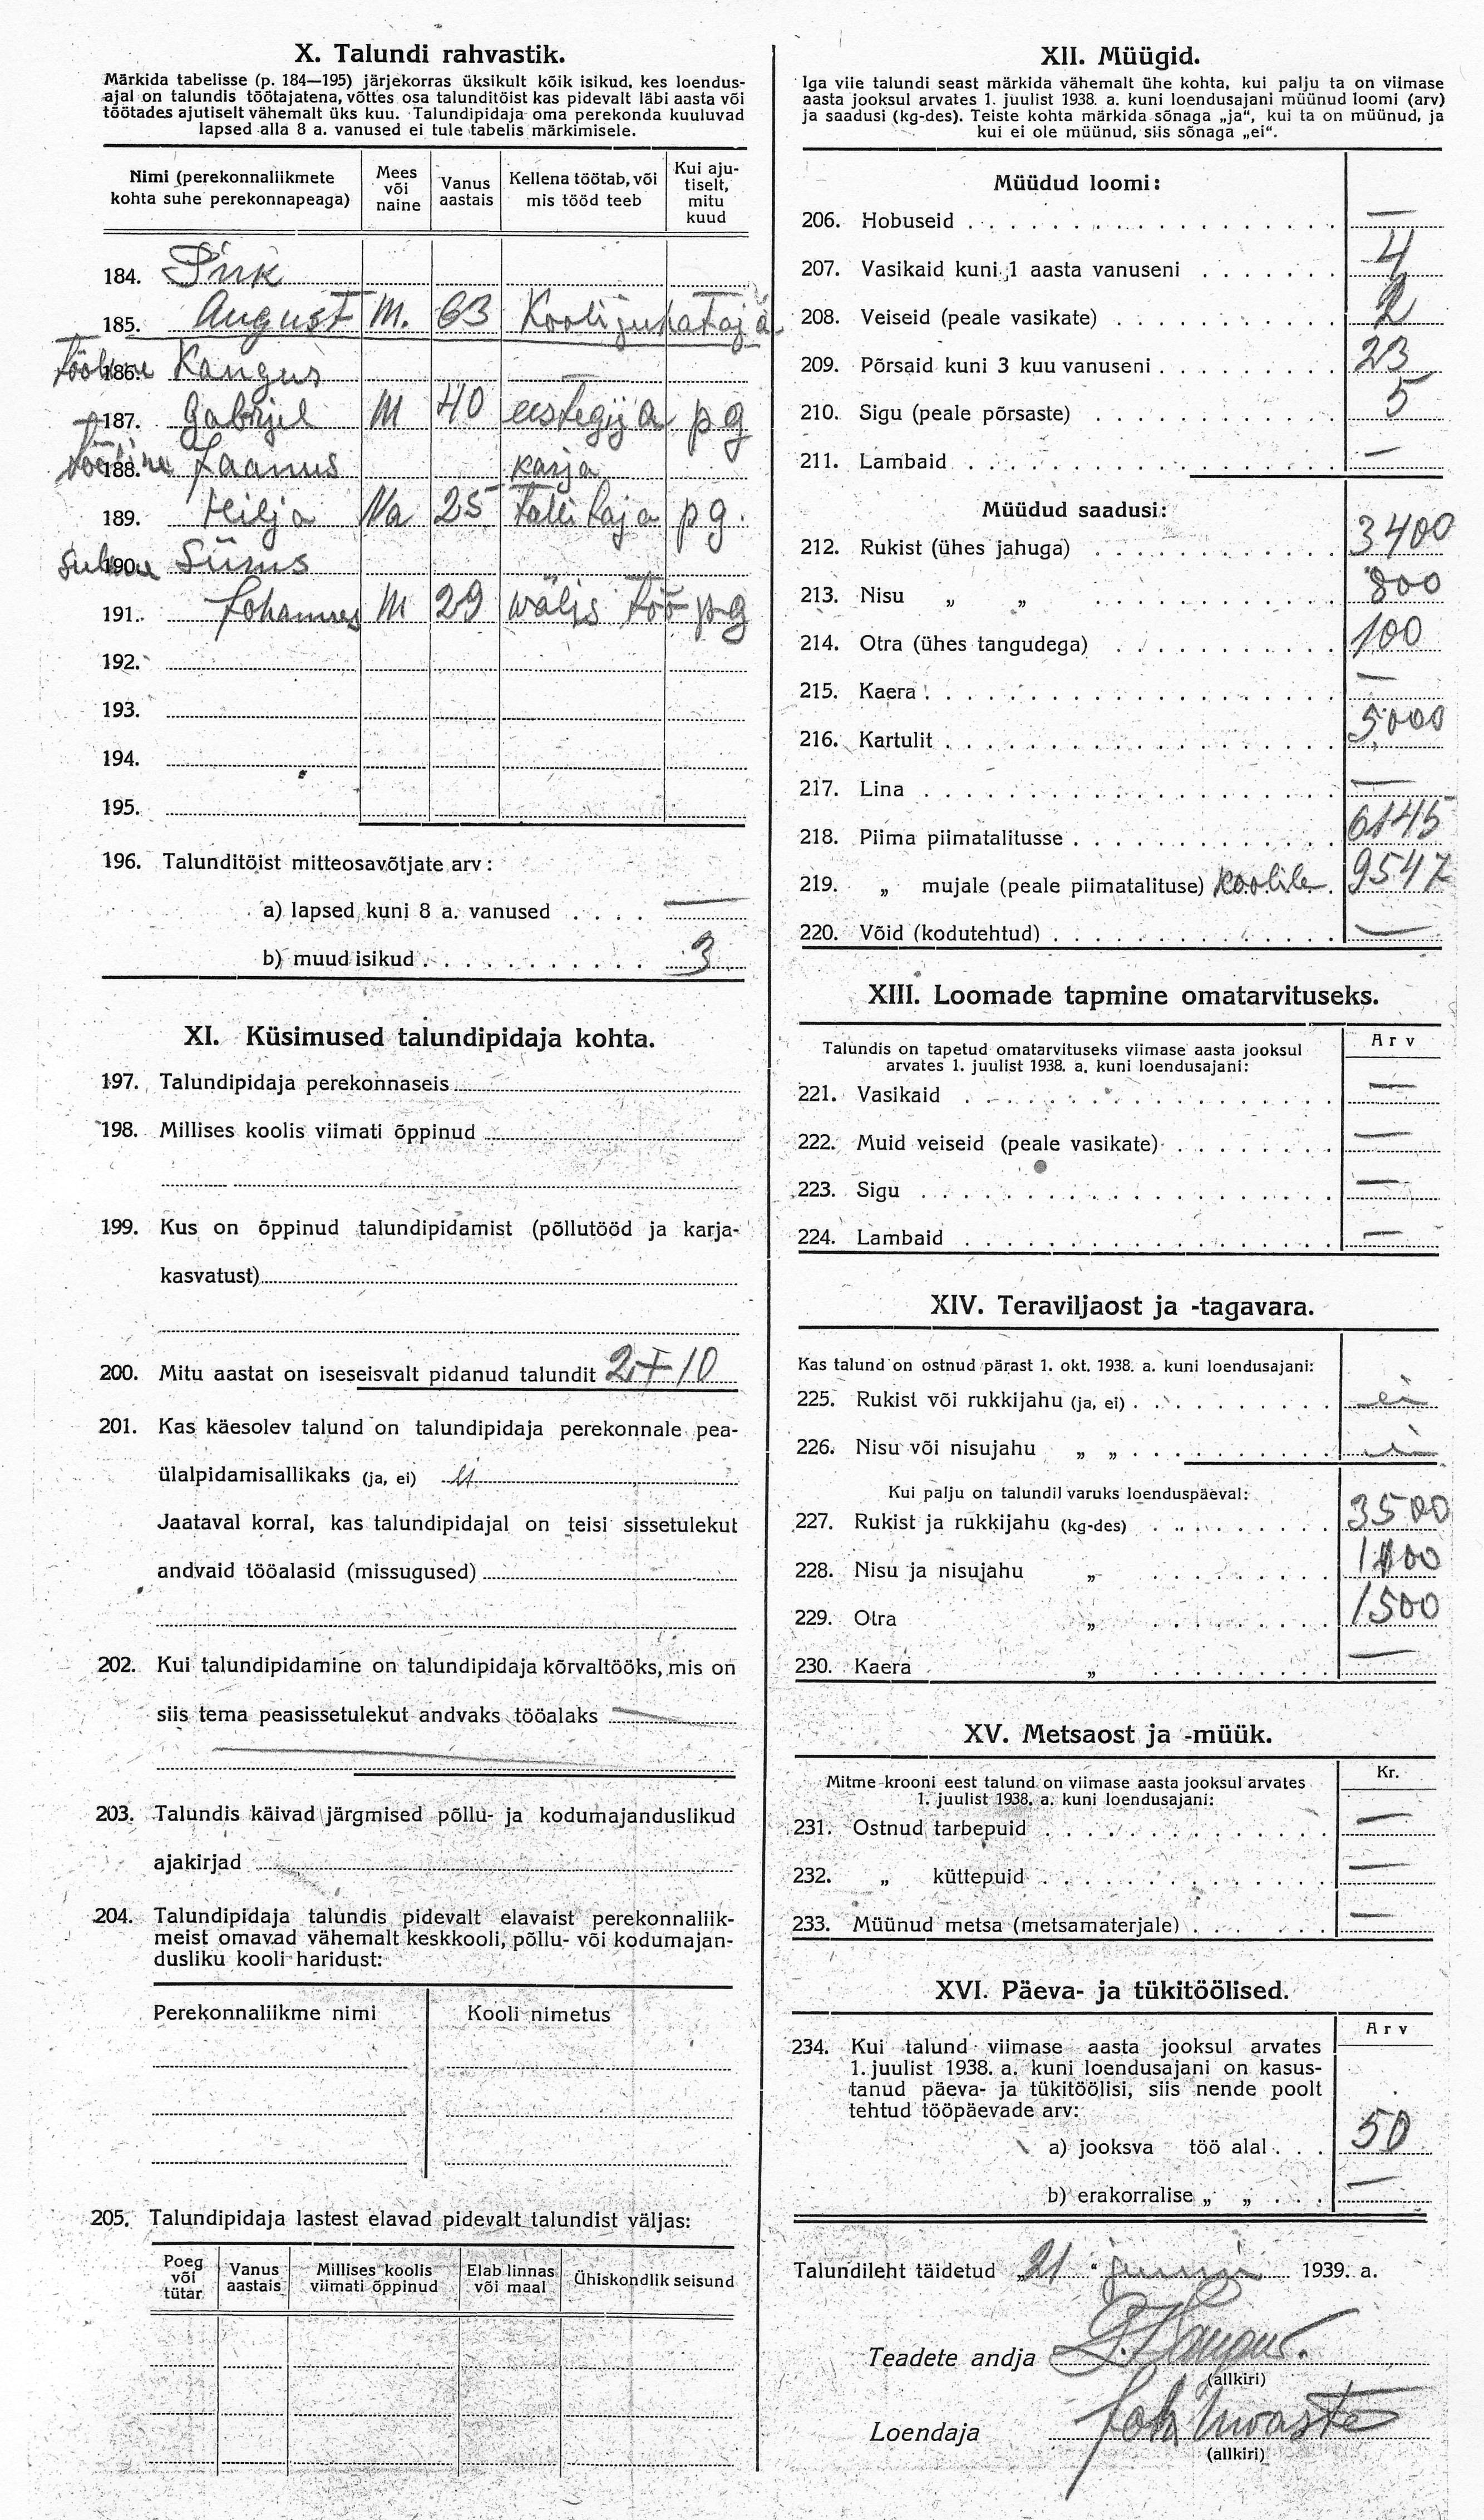 X. Talundi rahvastik.
Märkida tabelisse (p. 184—195) järjekorras üksikult kõik isikud, kes loendus-
ajal on talundis töötajatena, võttes osa talunditöist kas pidevalt läbi aasta või
töötades ajutiselt vähemalt üks kuu. Talundipidaja oma perekonda kuuluvad
lapsed alla 8 a. vanused ei tule tabelis märkimisele.
Nimi (perekonnaliikmete kohta suhe perekonnapeaga) Mees või naine Vanus aastais Kellena töötab, või mis tööd teeb Kui aju-tiselt, mitu kuud
184. Pink
185. August M. 63 Koolijuhataja
186. Kangus
187. Gabrjel M 40 eestegija pg
188. Jaanus karja
189. Hilja Na 25 talitaja pg.
190. Siimus
191. Johannes M 29 wälis töö pg
192.
193.
194.
195.
196. Talunditöist mitteosavõtjate arv:
a) lapsed kuni 8 a. vanused . . . . —
b) muud isikud . . . . . . . . . . . 3
XI. Küsimused talundipidaja kohta.
197. Talundipidaja perekonnaseis
198. Millises koolis viimati õppinud
199. Kus on õppinud talundipidamist (põllutööd ja karja-
kasvatust)
200. Mitu aastat on iseseisvalt pidanud talundit 2+10
201. Kas käesolev talund on talundipidaja perekonnale pea-
ülalpidamisallikaks (ja, ei) ei
Jaataval korral, kas talundipidajal on teisi sissetulekut
andvaid tööalasid (missugused)
202. Kui talundipidamine on talundipidaja kõrvaltööks, mis on
siis tema peasissetulekut andvaks tööalaks —
203. Talundis käivad järgmised põllu- ja kodumajanduslikud
ajakirjad
204. Talundipidaja talundis pidevalt elavaist perekonnaliik-
meist omavad vähemalt keskkooli, põllu- või kodumajan-
dusliku kooli haridust:
Perekonnaliikme nimi Kooli nimetus
205. Talundipidaja lastest elavad pidevalt talundist väljas:
Poeg või tütar Vanus aastais Millises koolis viimati õppinud Elab linnas või maal Ühiskondlik seisund
XII. Müügid.
Iga viie talundi seast märkida vähemalt ühe kohta, kui palju ta on viimase
aasta jooksul arvates 1. juulist 1938. a. kuni loendusajani müünud loomi (arv)
ja saadusi (kg-des). Teiste kohta märkida sõnaga „ja“, kui ta on müünud, ja
kui ei ole müünud, siis sõnaga „ei“.
Müüdud loomi:
206. Hobuseid —
207. Vasikaid kuni 1 aasta vanuseni 4
208. Veiseid (peale vasikate) 2
209. Põrsaid kuni 3 kuu vanuseni 23
210. Sigu (peale põrsaste) 5
211. Lambaid —
Müüdud saadusi:
212. Rukist (ühes jahuga) 3400
213. Nisu „ „ 800
214. Otra (ühes tangudega) 100
215. Kaera —
216. Kartulit 5000
217. Lina —
218. Piima piimatalitusse 6145
219. „ mujale (peale piimatalituse) koolile 9547
220. Võid (kodutehtud) —
XIII. Loomade tapmine omatarvituseks.
Talundis on tapetud omatarvituseks viimase aasta jooksul
arvates 1. juulist 1938. a. kuni loendusajani:
Arv
221. Vasikaid —
222. Muid veiseid (peale vasikate) —
223. Sigu —
224. Lambaid —
XIV. Teraviljaost ja -tagavara.
Kas talund on ostnud pärast 1. okt. 1938. a. kuni loendusajani:
225. Rukist või rukkijahu (ja, ei) ei
226. Nisu või nisujahu „ „ ei
Kui palju on talundil varuks loenduspäeval:
227. Rukist ja rukkijahu (kg-des) 3500
228. Nisu ja nisujahu „
229. Otra „ 1500
230. Kaera „ —
XV. Metsaost ja -müük.
Mitme krooni eest talund on viimase aasta jooksul arvates
1. juulist 1938. a. kuni loendusajani:
Kr.
231. Ostnud tarbepuid —
232. „ küttepuid —
233. Müünud metsa (metsamaterjale) —
XVI. Päeva- ja tükitöölised.
Arv
234. Kui talund viimase aasta jooksul arvates
1. juulist 1938. a. kuni loendusajani on kasus-
tanud päeva- ja tükitöölisi, siis nende poolt
tehtud tööpäevade arv:
a) jooksva töö alal 50
b) erakorralise „ „ —
Talundileht täidetud „21“ juuni 1939. a.
Teadete andja G. Kangus.
(allkiri)
Loendaja Joh
(allkiri)